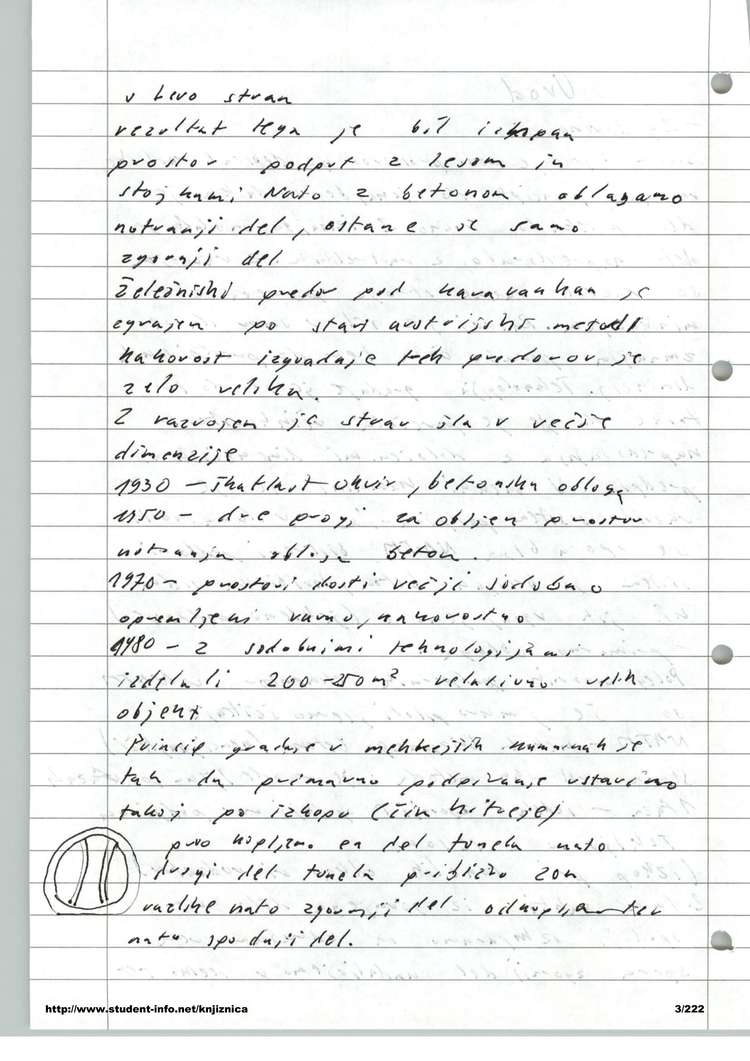 v levo stran
rezultat tega je bil izkopan
prostor podprt z lesom in
stojkami Nato z betonom oblagamo
notranji del, ostane še samo
zgornji del
železniški predor pod karavankan je
zgrajen po stari avstrijski metodi
kakovost izgradnje teh predorov je
zelo velika.
Z razvojem je stvar šla v večje
dimenzije
1930 – škatlast okvir, betonska obloga
1950 – dve progi zaobljen prostor
notranja obloga beton.
1970 – prostori dosti večji sodobno
opremljeni varno, kakovostno
1980 – z sodobnimi tehnologijami
izdelali 200 - 250 m² relativno velik
objekt
Princip gradnje v mehkejših kamninah je
tak da primarno podpiranje vstavimo
takoj po izkopu (čim hitreje)
prvo kopljemo en del tunela nato
drugi del tunela približno 20m
razlike nato zgornji del ter
nato spodnji del.
http://www.student-info.net/knjiznica
3/222